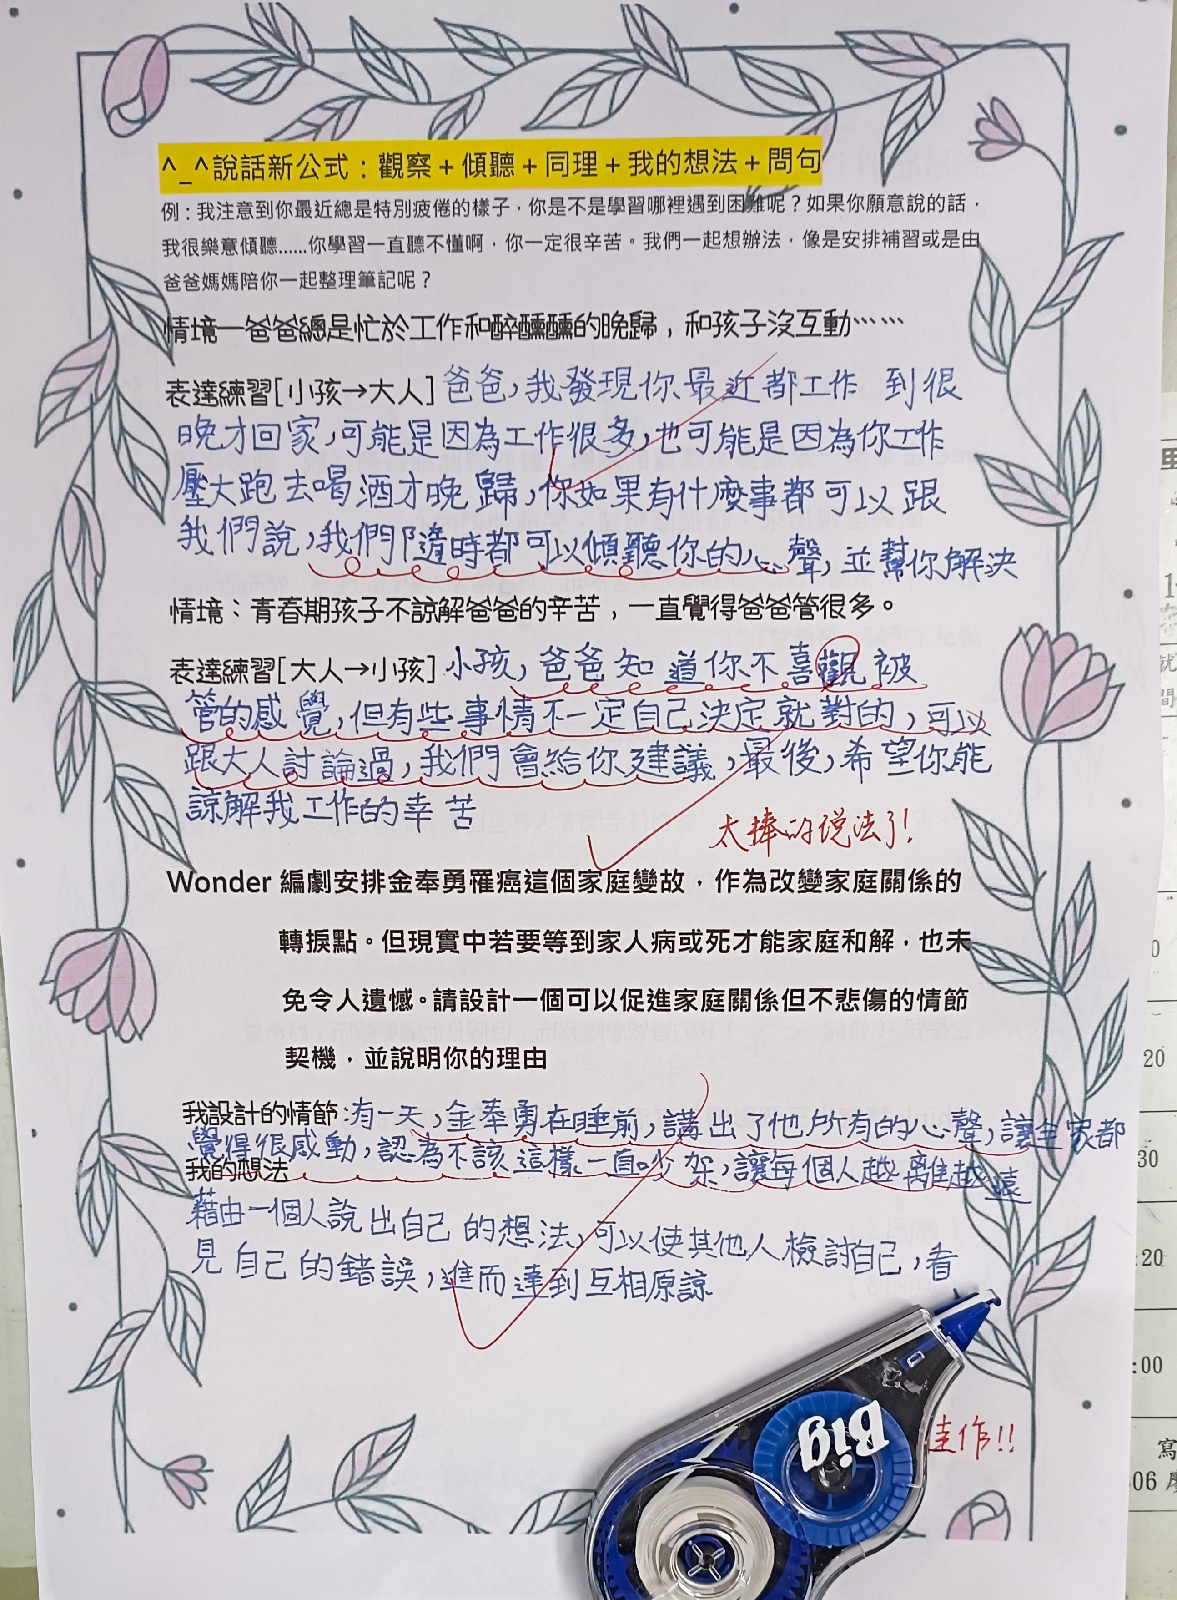 ^_^說話新公式：觀察＋傾聽＋同理＋我的想法＋問句
例：我注意到你最近總是特別疲倦的樣子，你是不是學習哪裡遇到困難呢？如果你願意說的話，
我很樂意傾聽......你學習一直聽不懂啊，你一定很辛苦。我們一起想辦法，像是安排補習或是由
爸爸媽媽陪你一起整理筆記呢？
情境一爸爸總是忙於工作和醉醺醺的晚歸，和孩子沒互動⋯⋯
表達練習[小孩→大人] 爸爸，我發現你最近都工作 到很
晚才回家，可能是因為工作很多，也可能是因為你工作
壓大跑去喝酒才晚歸，你如果有什麼事都可以跟
我們說，我們隨時都可以傾聽你的心聲，並幫你解決
情境：青春期孩子不諒解爸爸的辛苦，一直覺得爸爸管很多。
表達練習[大人→小孩] 小孩，爸爸知道你不喜觀被
管的感覺，但有些事情不一定自己決定就對的，可以
跟大人討論過，我們會給你建議，最後，希望你能
諒解我工作的幸苦
太捧的说法了!
Wonder 編劇安排金奉勇罹癌這個家庭變故，作為改變家庭關係的
轉捩點。但現實中若要等到家人病或死才能家庭和解，也未
免令人遺憾。請設計一個可以促進家庭關係但不悲傷的情節
契機，並說明你的理由
我設計的情節：有一天，金奉勇在睡前，講出了他所有的心聲，讓全家都
覺得很感動，認為不該這樣一直吵架，讓每個人越離越遠
我的想法
藉由一個人說出自己的想法，可以使其他人檢討自己，看
見自己的錯誤，進而達到互相原諒
佳作!!
Big
就
間
20
30
:20
:00
寫
06